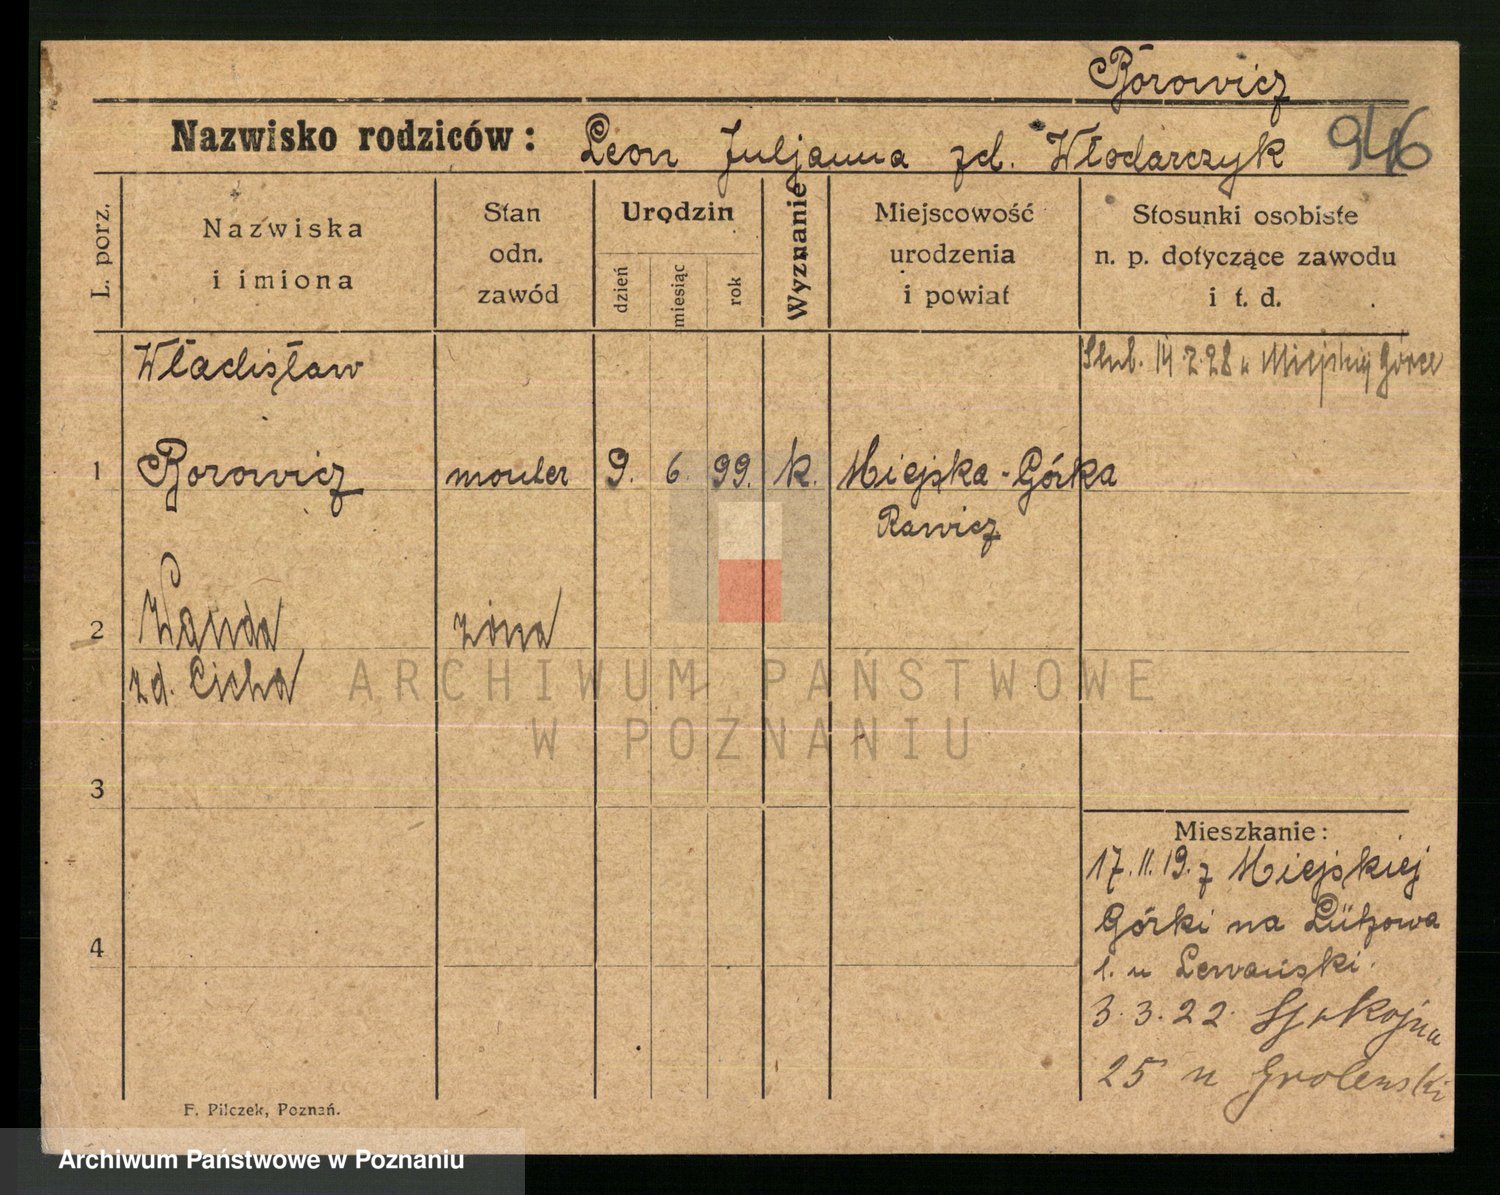 Borowicz
Nazwisko rodziców: Leon Juljanna zd. Włodarczyk 946
L. porz.
Nazwiska
i imiona
Stan
odn.
zawód
Urodzin
dzień
miesiąc
rok
Wyznanie
Miejscowość
urodzenia
i powiat
Stosunki osobiste
n. p. dotyczące zawodu
i t. d.
Władisław
Ślub. 14 7.28 w Miejskiej Górce
1 Borowicz monter 9. 6. 99. k. Miejska-Górka
Rawicz
2 Wanda żona
zd. Cicha
3
Mieszkanie:
17.11.19. z Miejskiej
Górki na Lützowa
1. u Lewański.
4
3.3.22. Spokojna
25 u Grolewski
F. Pilczek, Poznań.
ARCHIWUM PAŃSTWOWE
W POZNANIU
Archiwum Państwowe w Poznaniu